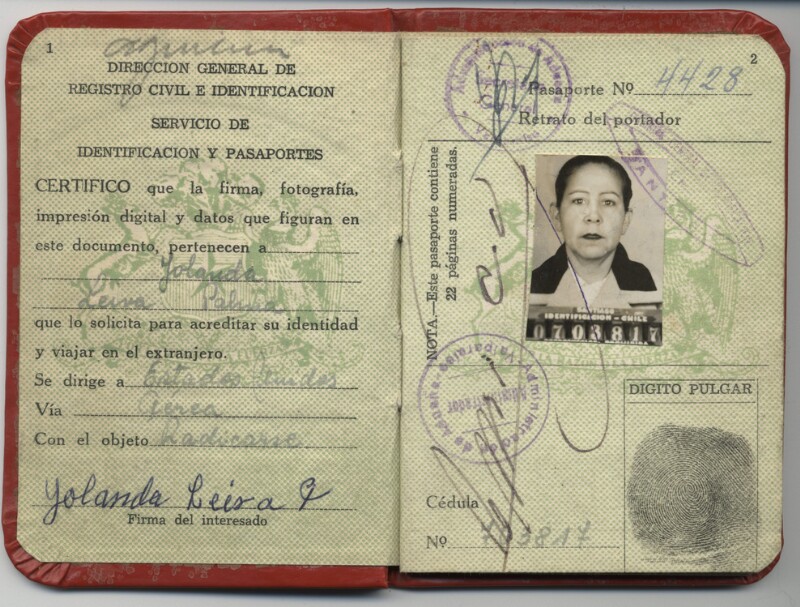 1
DIRECCION GENERAL DE
REGISTRO CIVIL E IDENTIFICACION
SERVICIO DE
IDENTIFICACION Y PASAPORTES
CERTIFICO que la firma, fotografía,
impresión digital y datos que figuran en
este documento, pertenecen a
Yolanda
Leiva Palma
que lo solicita para acreditar su identidad
y viajar en el extranjero.
Se dirige a Estados Unidos
Vía Aérea
Con el objeto Radicarse
Yolanda Leiva P
Firma del interesado
2
Pasaporte Nº 4428
Retrato del portador
NOTA.—Este pasaporte contiene
22 páginas numeradas.
SANTIAGO
IDENTIFICACION - CHILE
0703817
Administrador de Aduana
Administrador
DIGITO PULGAR
Cédula
Nº 703817